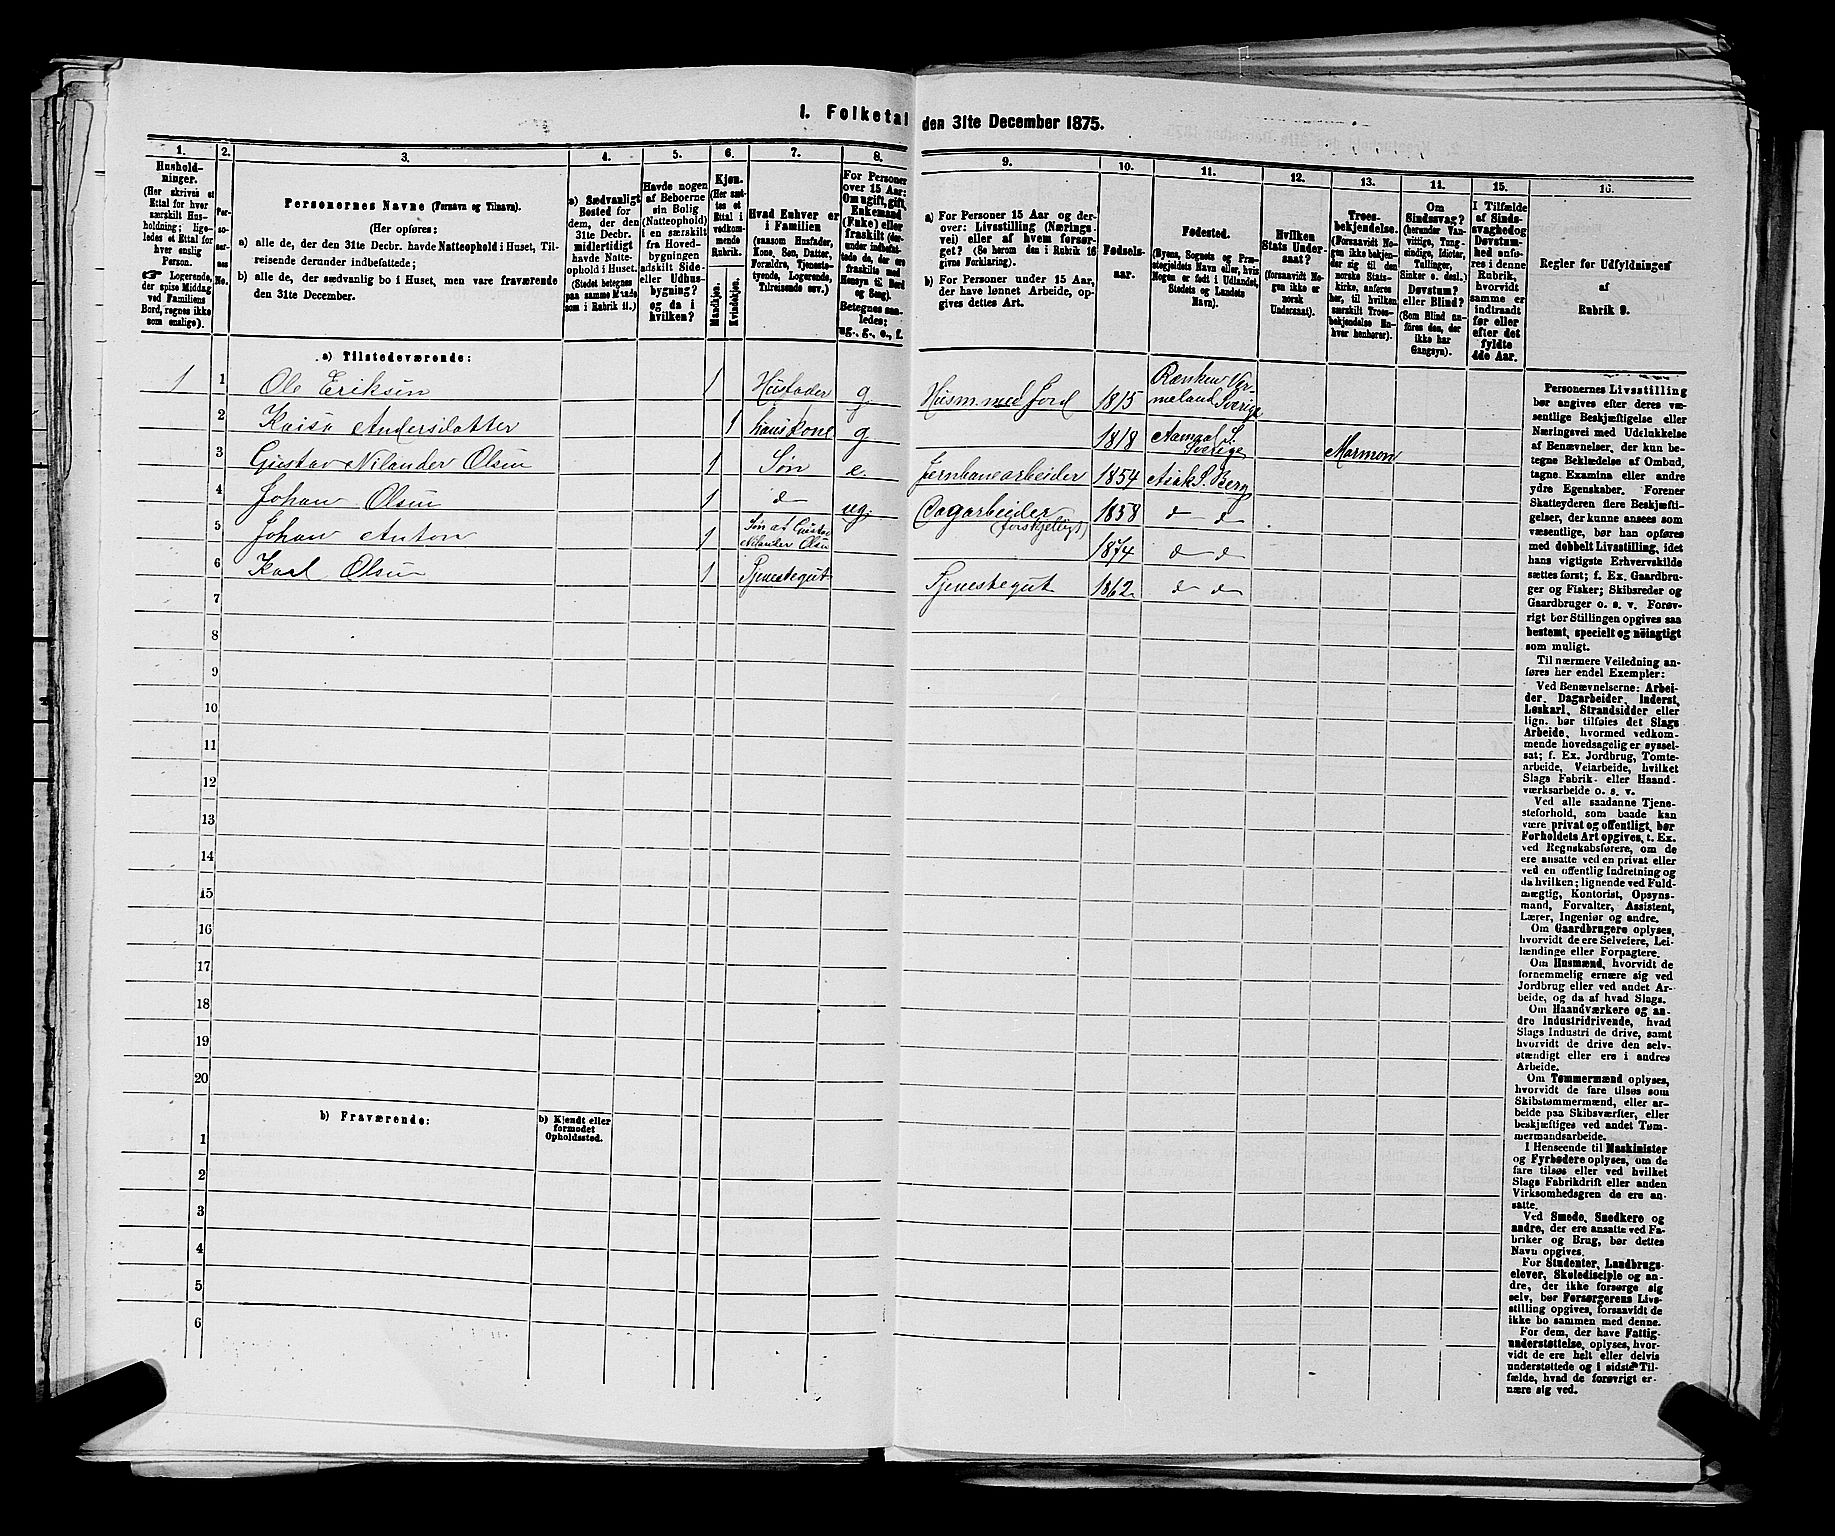 I. Folketal den 31te December 1875.
1.
2.
3.
4.
5.
6.
7.
8.
9.
10.
11.
12.
13.
14.
15.
16.
Hushold-
ninger.
(Her skrives et
Ettal for hver
særskilt Hus-
holdning; lige-
ledes et Ettal for
hver enslig
Person.
☞ Logerende,
der spise Middag
ved Familiens
Bord, regnes ikke
som enslige).
Per-
so-
ner-
nes
No.
Personernes Navne (Fornavn og Tilnavn).
(Her opføres:
a) alle de, der den 31te Decbr. havde Natteophold i Huset, Til-
reisende derunder indbefattede;
b) alle de, der sædvanlig bo i Huset, men vare fraværende
den 31te December.
a) Sædvanligt
Bosted for
dem, der den
31te Decbr.
midlertidigt
havde Natte-
ophold i Huset.
(Stedet betegnes
paa samme Maade
som i Rubrik 11.)
Havde nogen
af Beboerne
sin Bolig
(Natteophold)
i en særskilt
fra Hoved-
bygningen
adskilt Side-
eller Udhus-
bygning?
og da i
hvilken?
Kjøn.
(Her sæt-
tes et
Ettal i
vedkom-
mende
Rubrik.
Mandkjøn.
Kvindekjøn.
Hvad Enhver er
i Familien
(saasom Husfader,
Kone, Søn, Datter,
Forældre, Tjeneste-
tyende, Logerende,
Tilreisende osv.)
For Personer
over 15 Aar:
Om ugift, gift,
Enkemand
(Enke) eller
fraskilt (der-
under indbefat-
tede de, der ere
fraskilte med
Hensyn til Bord
og Seng).
Betegnes saa-
ledes:
ug., g., e., f.
a) For Personer 15 Aar og der-
over: Livsstilling (Nærings-
vei) eller af hvem forsør-
get? (Se herom den i Rubrik 16
givne Forklaring).
b) For Personer under 15 Aar,
der have lønnet Arbeide, op-
gives dettes Art.
Fødsels-
aar.
Fødested.
(Byens, Sognets og Præ-
stegjeldets Navn eller, hvis
Nogen er født i Udlandet,
Stedets og Landets
Navn).
Hvilken
Stats Under-
saat?
(forsaavidt No-
gen ikke er
norsk
Undersaat).
Troes-
bekjendelse.
(Forsaavidt No-
gen ikke bekjen-
der sig til den
norske Stats-
kirke, anføres
her, til hvilken
særskilt Troes-
bekjendelse En-
hver henhører).
Om
Sindssvag?
(herunder Van-
vittige, Tung-
sindige, Idioter,
Tullinger,
Sinker o. desl.)
Døvstum?
eller Blind?
(Som Blind an-
føres den, der
ikke har
Gangsyn).
I Tilfælde
af Sinds-
svaghed og
Døvstum-
hed anfø-
res i denne
Rubrik,
hvorvidt
samme er
indtraadt
før eller
efter det
fyldte
4de Aar.
Regler for Udfyldningen
af
Rubrik 9.
a) Tilstedeværende:
1 1 Ole Eriksen 1 Husfader g Husm. med Jord 1815 Rænken Ver-
meland Sverige
2 Kaisa Andersdatter 1 huuskone g 1818 Aamaal S. Sverige Mormon
3 Gustav Nilander Olsen 1 Søn e. Jernbanearbeider 1854 Asak S. Berg
4 Johan Olsen 1 d ug. Dagarbeider (forskjeligt) 1858 d d
5 Johan Anton 1 Søn af Gustav
Nilander Olsen 1874 d d
6 Karl Olsen 1 Tjenestegut Tjenestegut 1862 d d
7
8
9
10
11
12
13
14
15
16
17
18
19
20
b) Fraværende:
b) Kjendt eller
formodet
Opholdssted.
1
2
3
4
5
6
Personernes Livsstilling
bør angives efter deres væ-
sentlige Beskjæftigelse eller
Næringsvei med Udelukkelse
af Benævnelser, der kun be-
tegne Beklædelse af Ombud,
tagne Examina eller andre
ydre Egenskaber. Forener
Skatteyderen flere Beskjæfti-
gelser, der kunne ansees som
væsentlige, bør han opføres
med dobbelt Livsstilling, idet
hans vigtigste Erhvervskilde
sættes først; f. Ex. Gaardbru-
ger og Fisker; Skibsreder og
Gaardbruger o. s. v. Forøv-
rigt bør Stillingen opgives saa
bestemt, specielt og nöiagtigt
som muligt.
Til nærmere Veiledning an-
føres her endel Exempler:
Ved Benævnelserne: Arbei-
der, Dagarbeider, Inderst,
Løskarl, Strandsidder eller
lign. bør tilføies det Slags
Arbeide, hvormed vedkom-
mende hovedsagelig er syssel-
sat; f. Ex. Jordbrug, Tomte-
arbeide, Veiarbeide, hvilket
Slags Fabrik- eller Haand-
værksarbeide o. s. v.
Ved alle saadanne Tjene-
steforhold, som baade kan
være privat og offentligt, bør
Forholdets Art opgives, t. Ex.
ved Regnskabsførere, om de
ere ansatte ved en privat eller
ved en offentlig Indretning og
da hvilken; lignende ved Fuld-
mægtig, Kontorist, Opsyns-
mand, Forvalter, Assistent,
Lærer, Ingeniør og andre.
Om Gaardbrugere oplyses,
hvorvidt de ere Selveiere, Lei-
lændinge eller Forpagtere.
Om Husmænd, hvorvidt de
fornemmelig ernære sig ved
Jordbrug eller ved andet Ar-
beide, og da af hvad Slags.
Om Haandværkere og an-
dre Industridrivende, hvad
Slags Industri de drive, samt
hvorvidt de drive den selv-
stændigt eller ere i andres
Arbeide.
Om Tømmermænd oplyses,
hvorvidt de fare tilsøs som
Skibstømmermænd, eller ar-
beide paa Skibsværfter, eller
beskjæftiges ved andet Tøm-
mermandsarbeide.
I Henseende til Maskinister
og Fyrbødere oplyses, om de
fare tilsøs eller ved hvilket
Slags Fabrikdrift eller anden
Virksomhedsgren de ere an-
satte.
Ved Smede, Snedkere og
andre, der ere ansatte ved Fa-
briker og Brug, bør dettes
Navn opgives.
For Studenter, Landbrugs-
elever, Skoledisciple og an-
dre, der ikke forsørge sig
selv, bør Forsørgerens Livs-
stilling opgives, forsaavidt de
ikke bo sammen med denne.
For dem, der have Fattig-
understøttelse, oplyses, hvor-
vidt de ere helt eller delvis
understøttede og i sidste Til-
fælde, hvad de forøvrigt er-
nære sig ved.